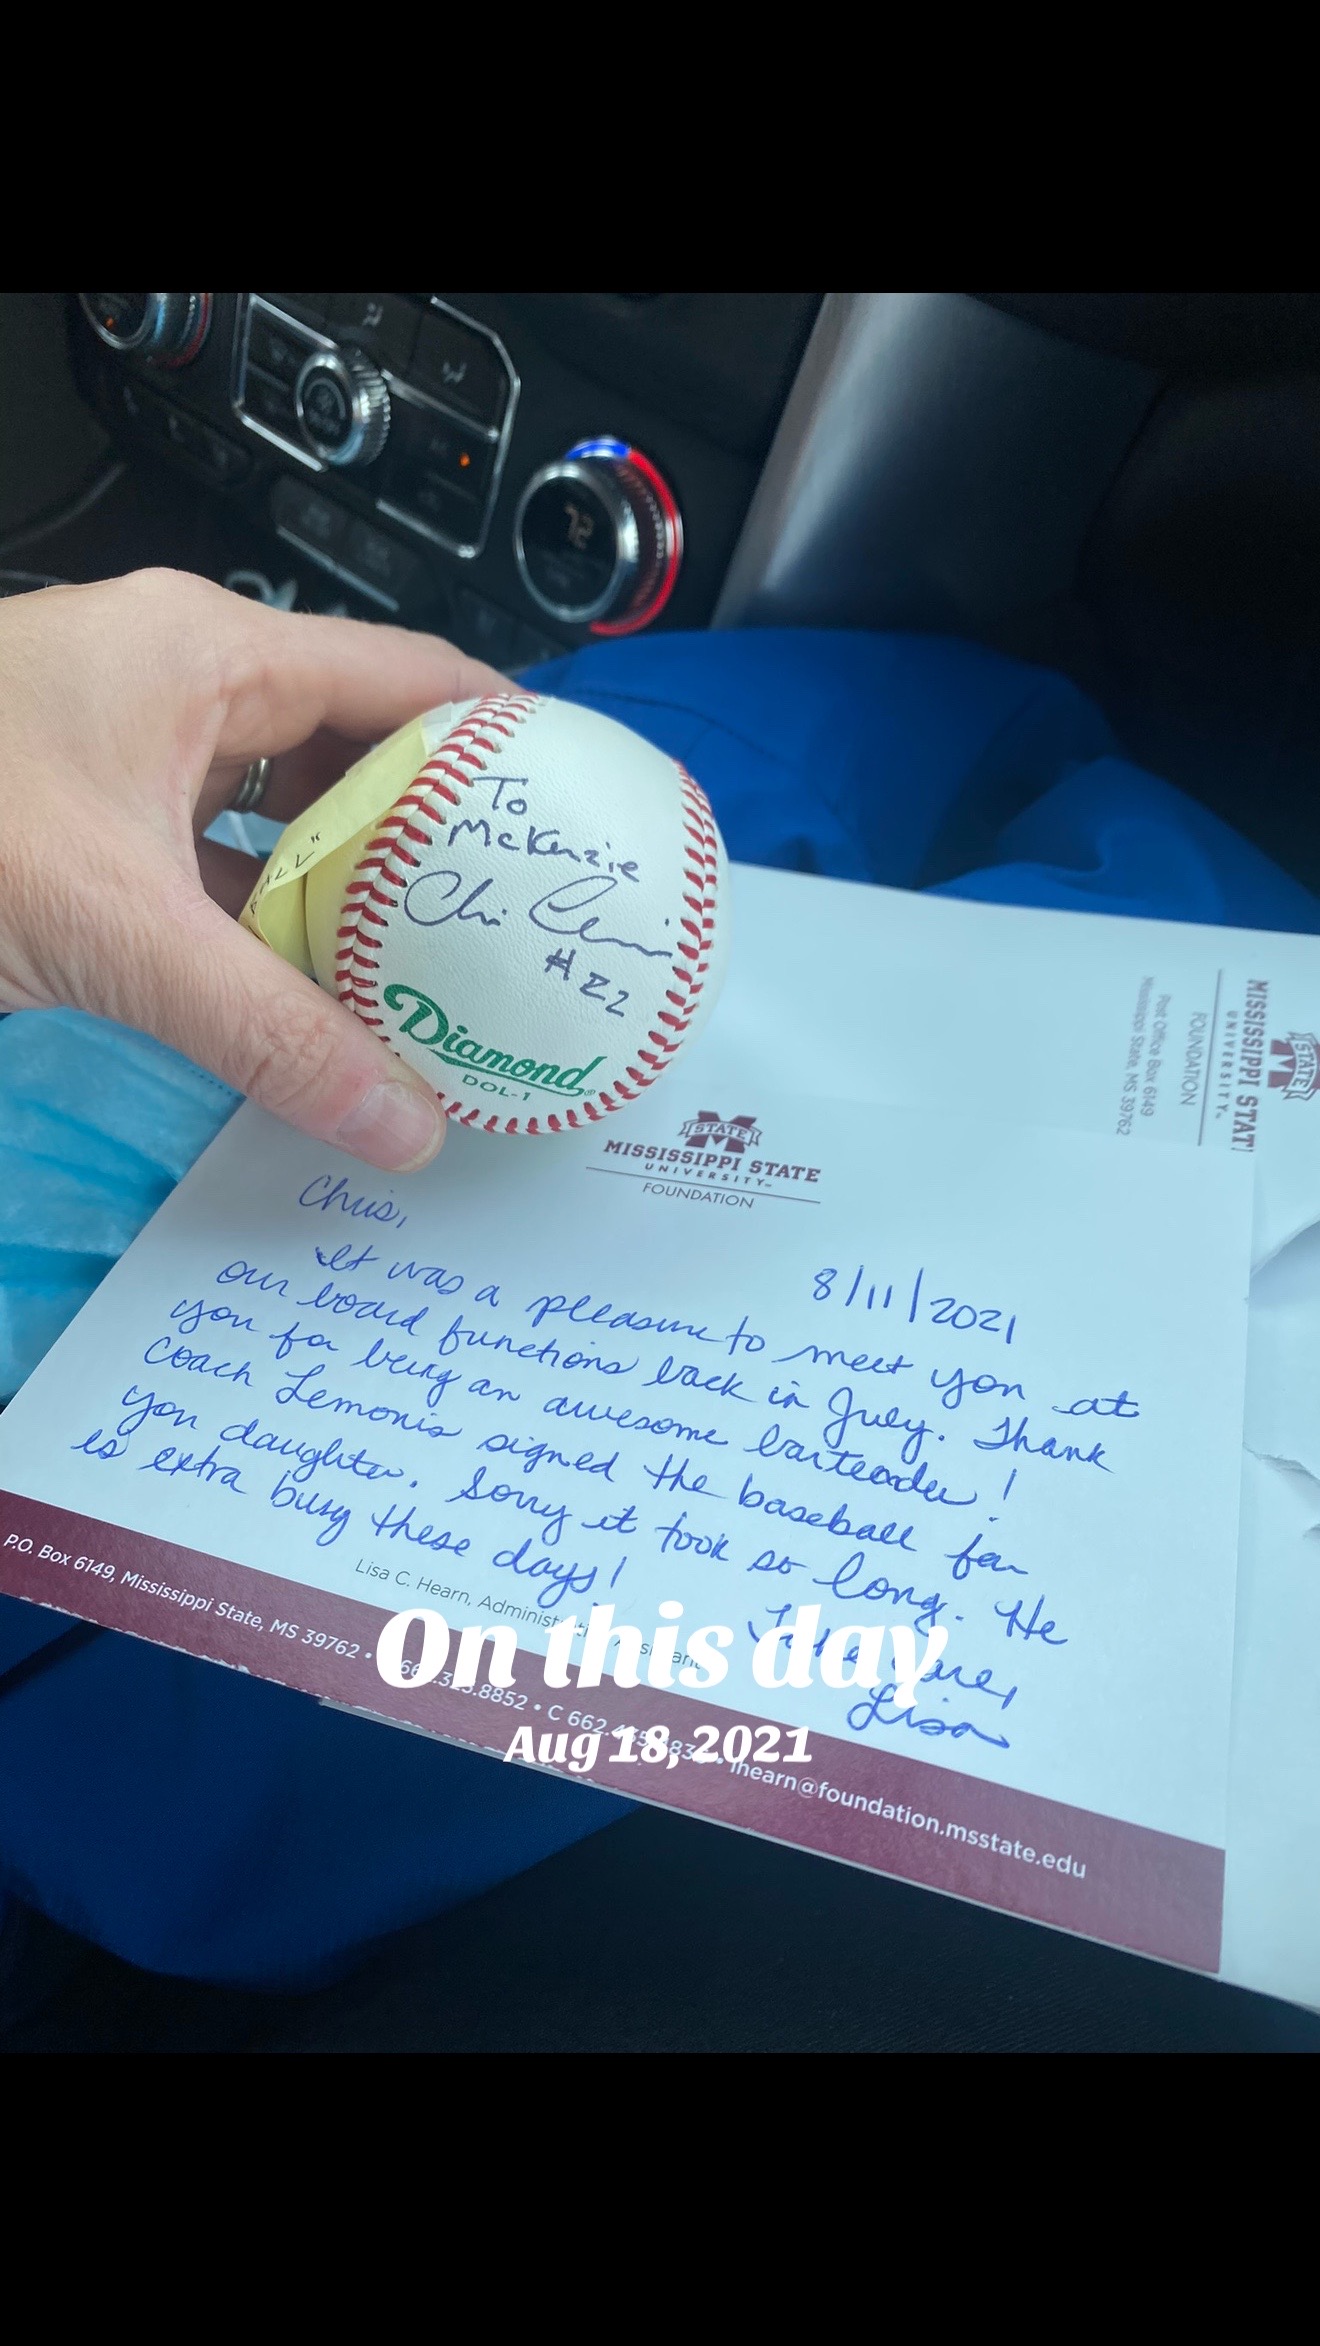 72
ALL"
To
McKenzie
#22
Diamond®
DOL-1
STATE
MISSISSIPPI STAT
UNIVERSITY™
FOUNDATION
Post Office Box 6149
Mississippi State, MS 39762
STATE
MISSISSIPPI STATE
UNIVERSITY™
FOUNDATION
8/11/2021
Chris,
It was a pleasure to meet you at
our board functions back in July. Thank
you for being an awesome bartender!
Coach Lemonis signed the baseball for
you daughter. Sorry it took so long. He
is extra busy these days!
Take care,
Lisa
Lisa C. Hearn, Administrative Assistant
P.O. Box 6149, Mississippi State, MS 39762 • 8852 • C 662 • lhearn@foundation.msstate.edu
On this day
Aug 18, 2021